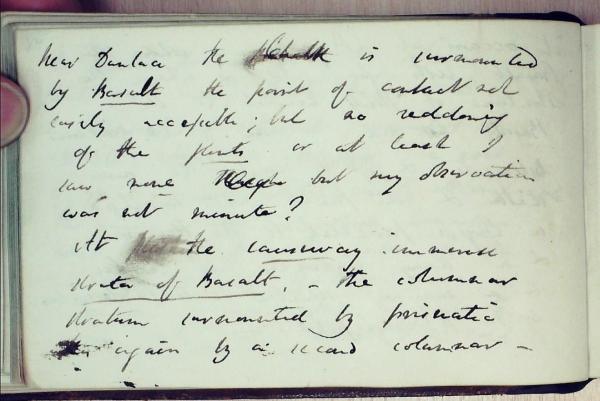 Near Dunluce the Chalk is surmounted
by Basalt the point of contact not
easily accessible; but no reddening
of the flints or at least I
saw none but my observation
was not minute?
At the causeway immense
strata of Basalt, – the columnar
stratum surmounted by prismatic
again by a second columnar –